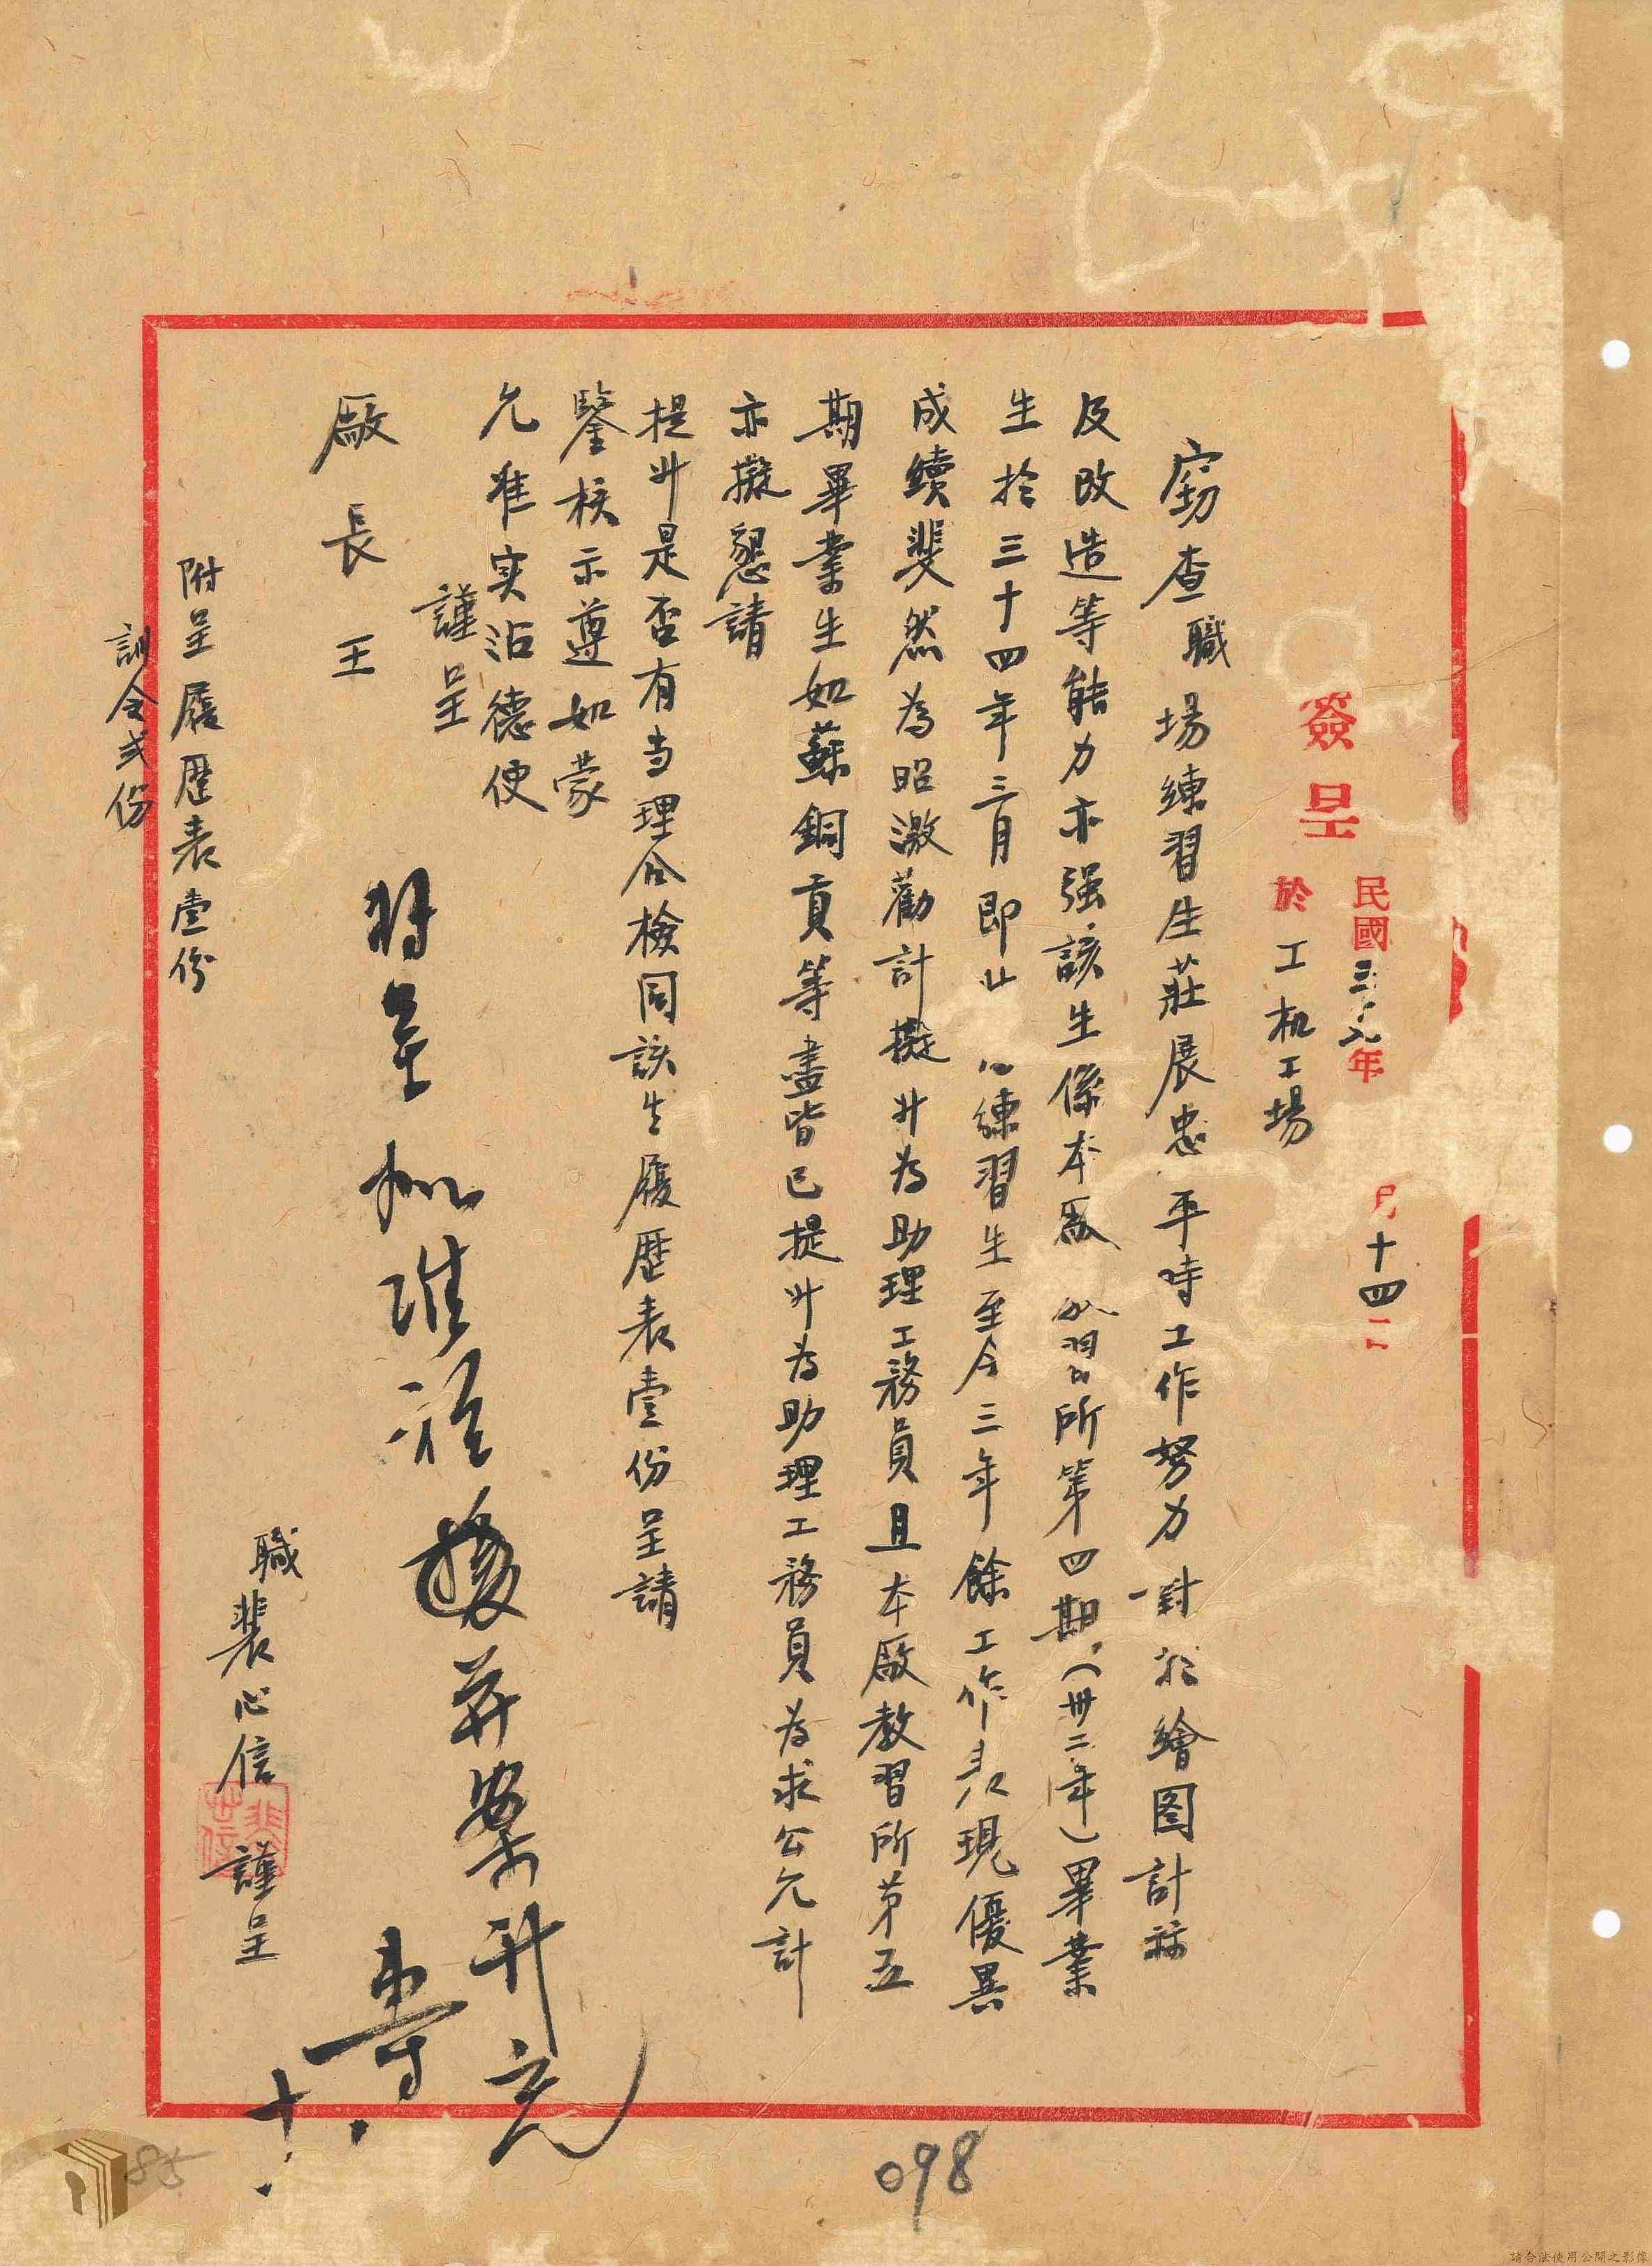 簽呈
民國三十七年 月十四日
於工机工場
竊查職場練習生莊展忠平時工作努力對於繪图計
及改造等能力亦强該生係本廠 習所第四期(卅二年)畢業
生於三十四年三月即 練習生至今三年餘工作表現優異
成績斐然為昭激勸計擬升為助理工務員且本廠教習所第五
期畢業生如蘇銅貢等盡皆已提升為助理工務員為求公允計
亦擬懇請
提升是否有当理合檢同該生履歷表壹份呈請
鑒核示遵如蒙
允准实沾德便
謹呈
廠長王
附呈履歷表壹份
訓令弍份
職裴心信謹呈
098
85
請合法使用公開之影像